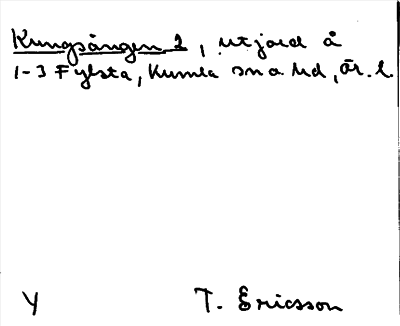 Kungsängen 2, utjord å
1-3 Fylsta, Kumla sn o hd, Ör. l.
Y T. Ericsson